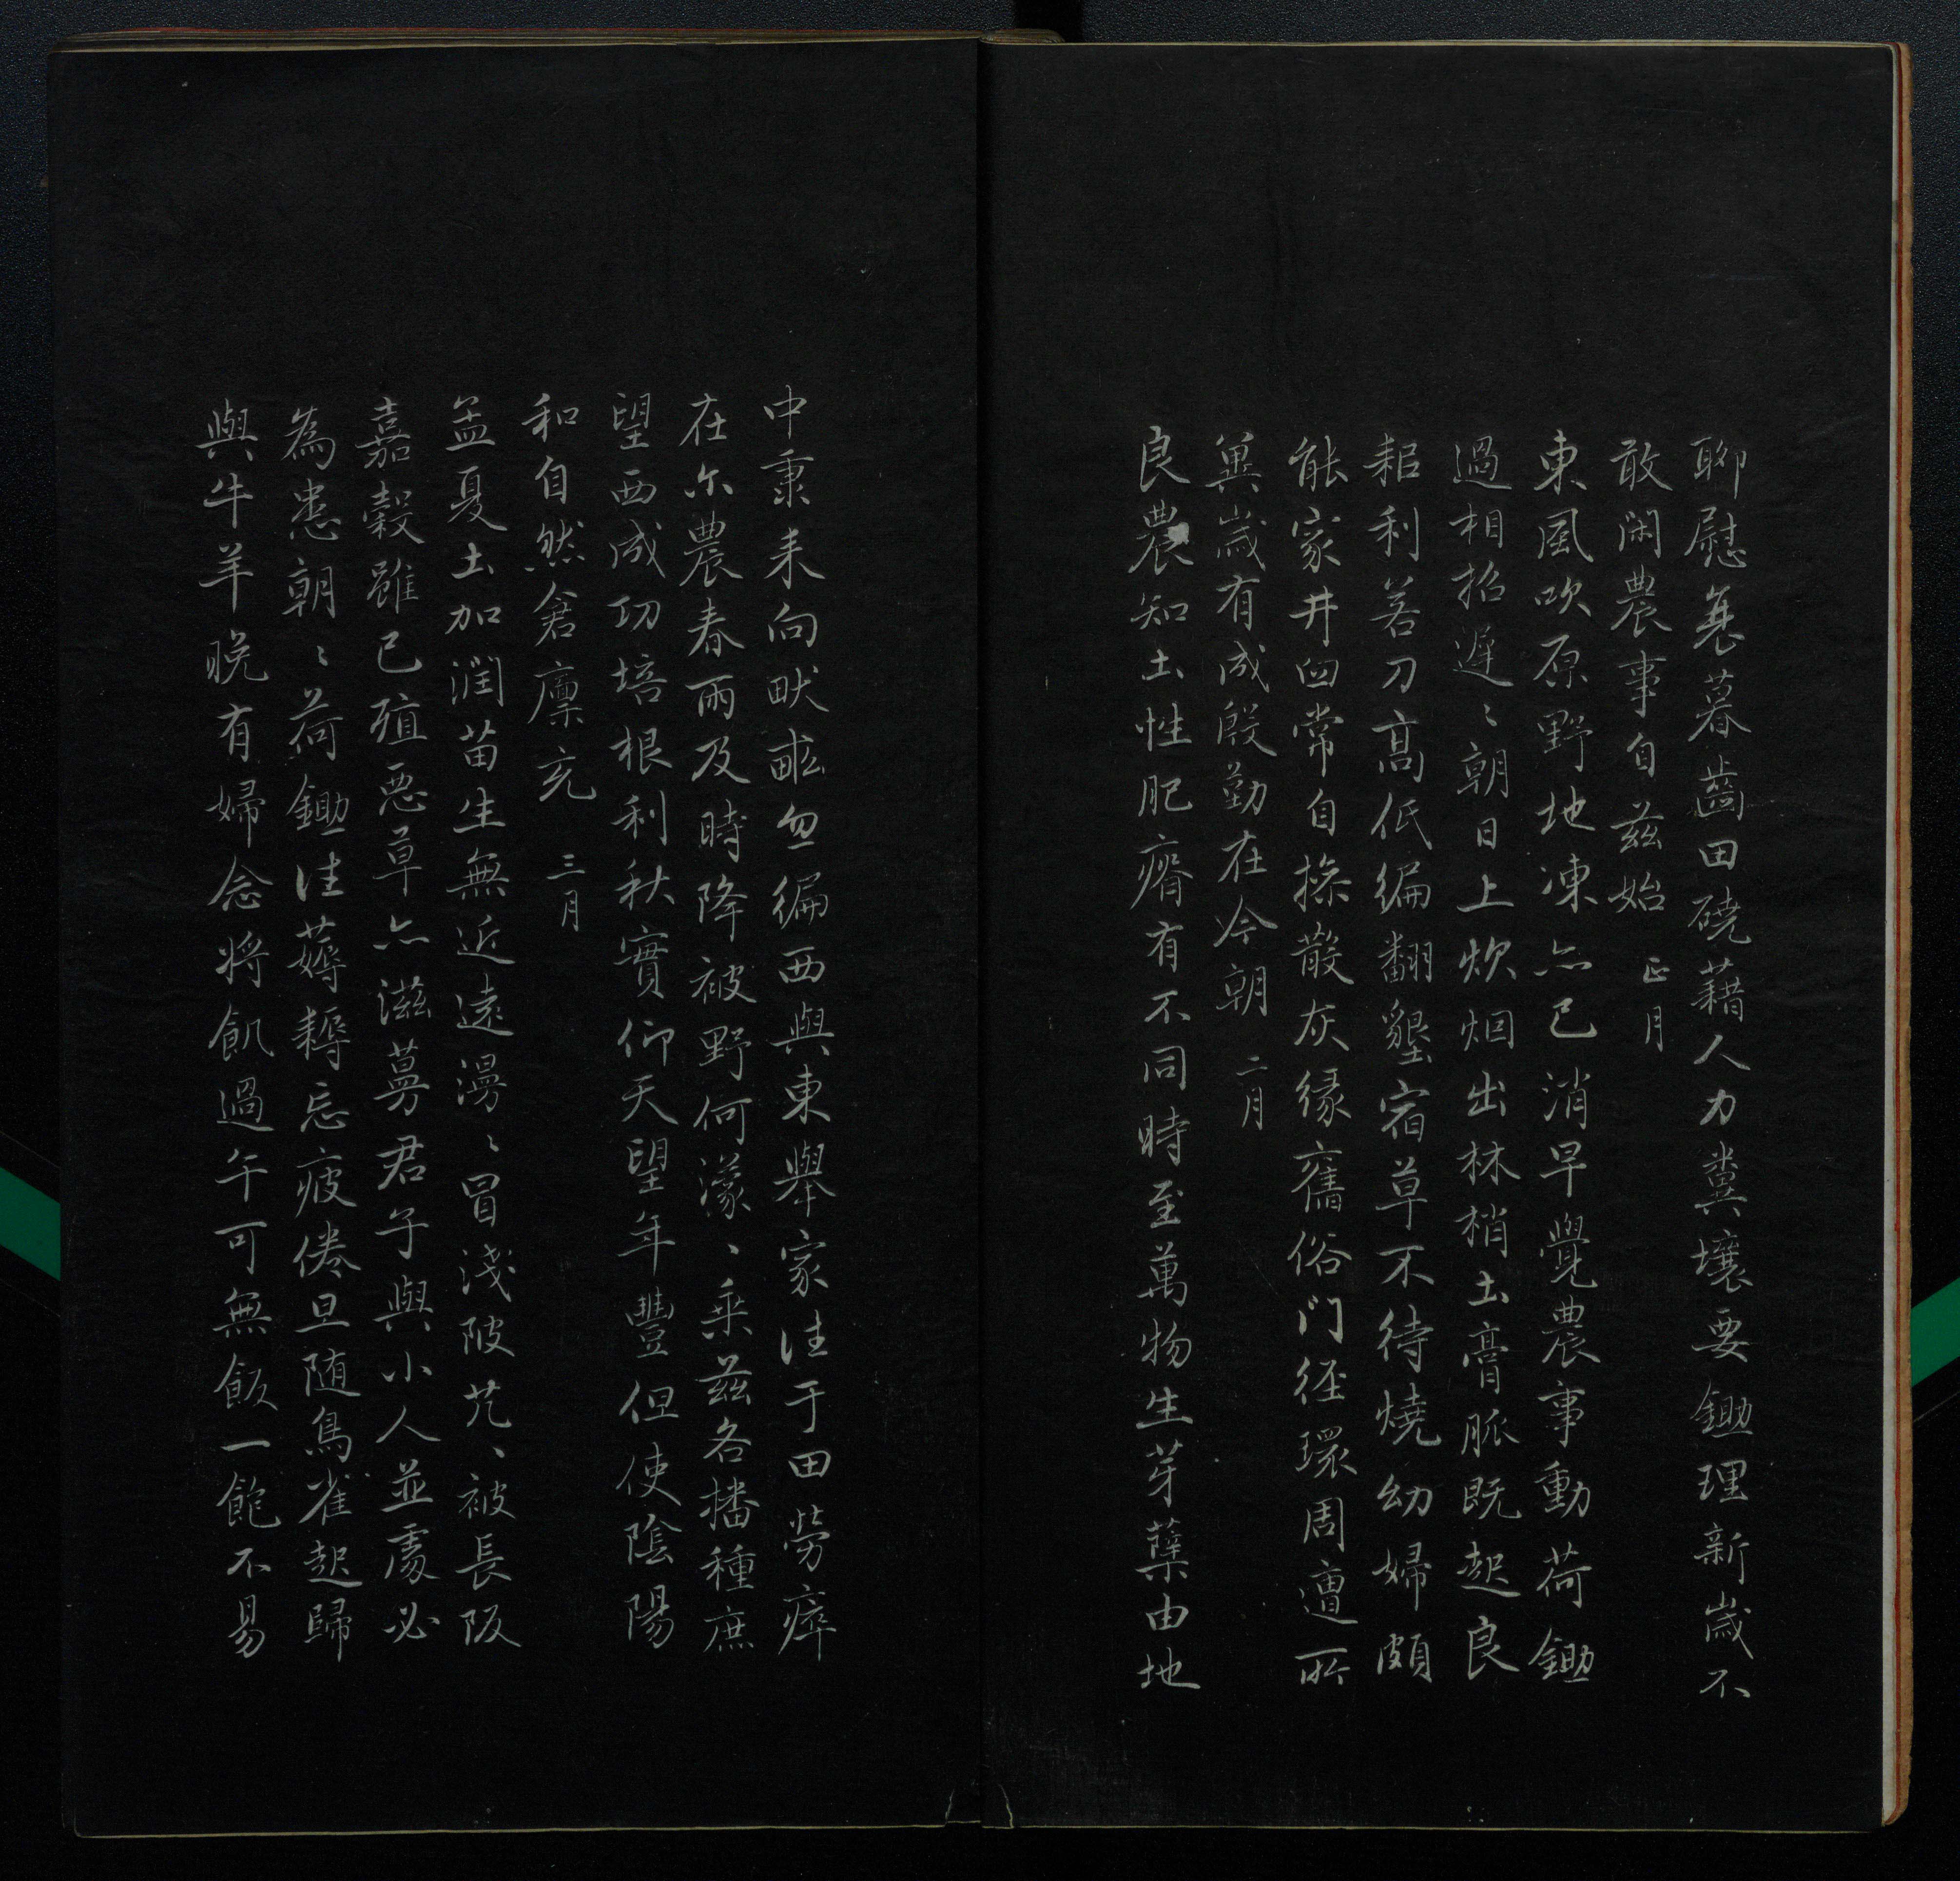 聊慰衰暮齒田磽藉人力糞壤要鋤理新歲不
敢閑農事自茲始 正月
東風吹原野地凍亦已消早覺農事動荷鋤
過相招遲〻朝日上炊烟出林梢土膏脈既起良
耜利若刀高低徧翻墾宿草不待燒幼婦頗
能家井臼常自操散灰緣舊俗門徑環周遭所
冀歲有成殷勤在今朝 二月
良農知土性肥瘠有不同時至萬物生芽蘖由地
中秉耒向畎畝忽徧西與東舉家往于田勞瘁
在尔農春雨及時降被野何濛〻乘茲各播種庶
望西成功培根利秋實仰天望年豐但使陰陽
和自然倉廩充 三月
孟夏土加潤苗生無近遠漫〻冒淺陂芃〻被長阪
嘉穀雖已殖惡草亦滋蔓君子與小人並處必
為患朝〻荷鋤往薅耨忘疲倦旦随鳥雀起歸
與牛羊晚有婦念將飢過午可無飯一飽不易